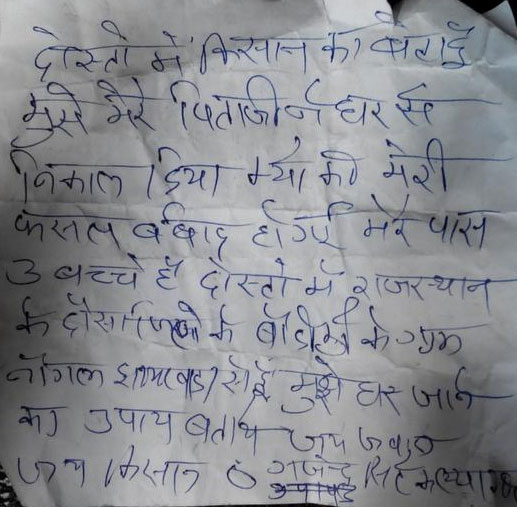 दोस्तो में किसान का बेटा हुँ
मुझे मेरे पिताजी ने घर से
निकाल दिया क्यो की मेरी
फसल बर्बाद हो गई मेरे पास
3 बच्चे है दोस्तो में राजस्थान
के दौसा जिले के बाँदीकुई के ग्राम
नांगल झामरवाडा से हुँ मुझे घर जाने
का उपाय बताये जय जवान
जय किसान गजेन्द्र सिंह